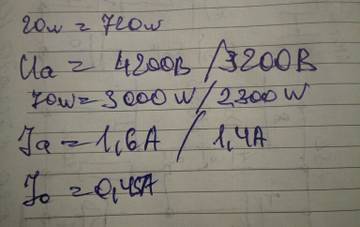 20w = 720w
Ua = 4200В / 3200В
70w = 3000 W / 2300 W
Ja = 1,6А / 1,4А
Jo = 0,45А